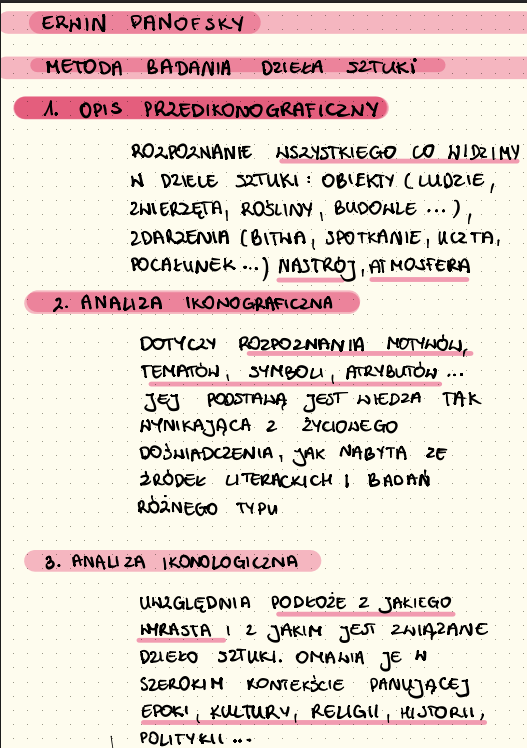 ERWIN PANOFSKY
METODA BADANIA DZIEŁA SZTUKI
1. OPIS PRZEDIKONOGRAFICZNY
ROZPOZNANIE WSZYSTKIEGO CO WIDZIMY
W DZIELE SZTUKI: OBIEKTY (LUDZIE,
ZWIERZĘTA, ROŚLINY, BUDOWLE ...),
ZDARZENIA (BITWA, SPOTKANIE, UCZTA,
POCAŁUNEK ...) NASTRÓJ, ATMOSFERA
2. ANALIZA IKONOGRAFICZNA
DOTYCZY ROZPOZNANIA MOTYWÓW,
TEMATÓW, SYMBOLI, ATRYBUTÓW ...
JEJ PODSTAWĄ JEST WIEDZA TAK
WYNIKAJĄCA Z ŻYCIOWEGO
DOŚWIADCZENIA, JAK NABYTA ZE
ŹRÓDEŁ LITERACKICH I BADAŃ
RÓŻNEGO TYPU
3. ANALIZA IKONOLOGICZNA
UWZGLĘDNIA PODŁOŻE Z JAKIEGO
WYRASTA I Z JAKIM JEST ZWIĄZANE
DZIEŁO SZTUKI. OMAWIA JE W
SZEROKIM KONTEKŚCIE PANUJĄCEJ
EPOKI, KULTURY, RELIGII, HISTORII,
POLITYKII ...